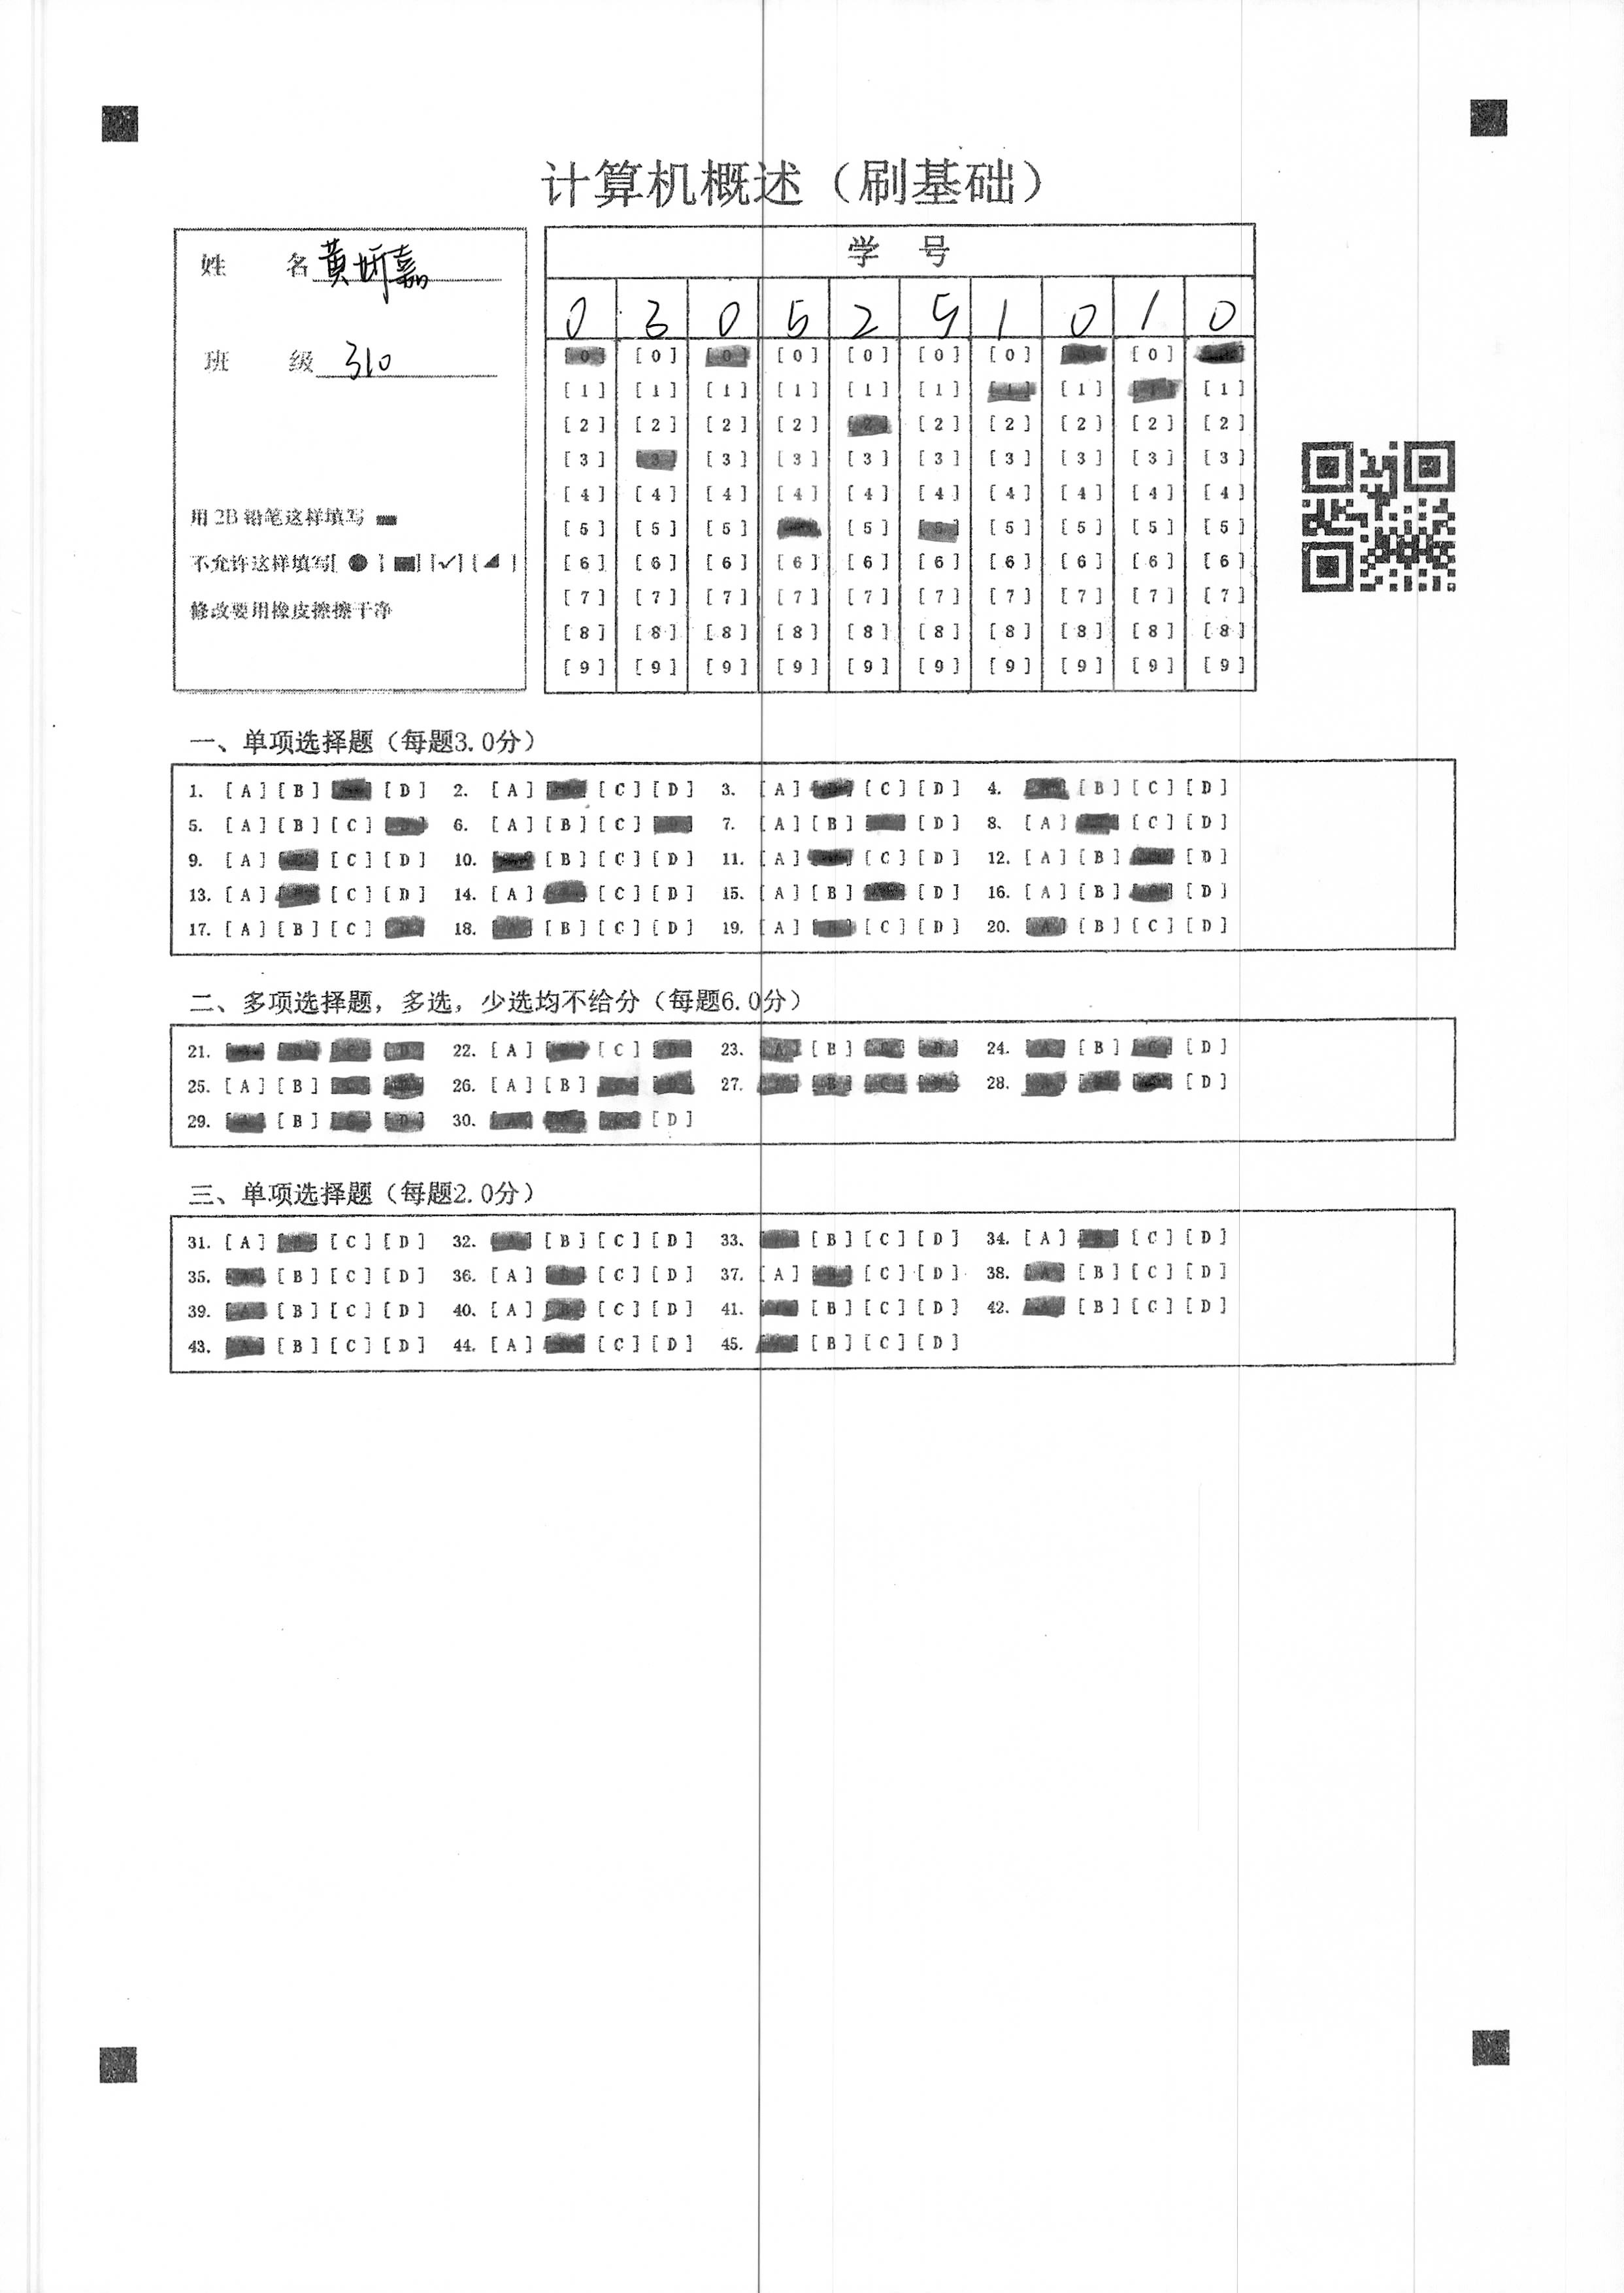 计算机概述（刷基础）
姓 名 黄妡嘉
班 级 310
用 2B 铅笔这样填写
不允许这样填写[ ● ] [■] [✓] [◢ ]
修改要用橡皮擦擦干净
学 号
0 3 0 5 2 5 1 0 1 0
[0] [0] [0] [0] [0] [0] [0] [0]
[1] [1] [1] [1] [1] [1] [1] [1] [1]
[2] [2] [2] [2] [2] [2] [2] [2] [2]
[3] [3] [3] [3] [3] [3] [3] [3] [3] [3]
[4] [4] [4] [4] [4] [4] [4] [4] [4] [4]
[5] [5] [5] [5] [5] [5] [5] [5] [5]
[6] [6] [6] [6] [6] [6] [6] [6] [6] [6]
[7] [7] [7] [7] [7] [7] [7] [7] [7] [7]
[8] [8] [8] [8] [8] [8] [8] [8] [8] [8]
[9] [9] [9] [9] [9] [9] [9] [9] [9] [9]
一、单项选择题（每题3.0分）
1. [A] [B] [D] 2. [A] [C] [D] 3. [A] [C] [D] 4. [B] [C] [D]
5. [A] [B] [C] 6. [A] [B] [C] 7. [A] [B] [D] 8. [A] [C] [D]
9. [A] [C] [D] 10. [B] [C] [D] 11. [A] [C] [D] 12. [A] [B] [D]
13. [A] [C] [D] 14. [A] [C] [D] 15. [A] [B] [D] 16. [A] [B] [D]
17. [A] [B] [C] 18. [B] [C] [D] 19. [A] [C] [D] 20. [A] [B] [C] [D]
二、多项选择题，多选，少选均不给分（每题6.0分）
21. 22. [A] [C] 23. [B] 24. [B] [D]
25. [A] [B] 26. [A] [B] 27. 28. [D]
29. [B] 30. [D]
三、单项选择题（每题2.0分）
31. [A] [C] [D] 32. [B] [C] [D] 33. [B] [C] [D] 34. [A] [C] [D]
35. [B] [C] [D] 36. [A] [C] [D] 37. [A] [C] [D] 38. [B] [C] [D]
39. [B] [C] [D] 40. [A] [C] [D] 41. [B] [C] [D] 42. [B] [C] [D]
43. [B] [C] [D] 44. [A] [C] [D] 45. [B] [C] [D]